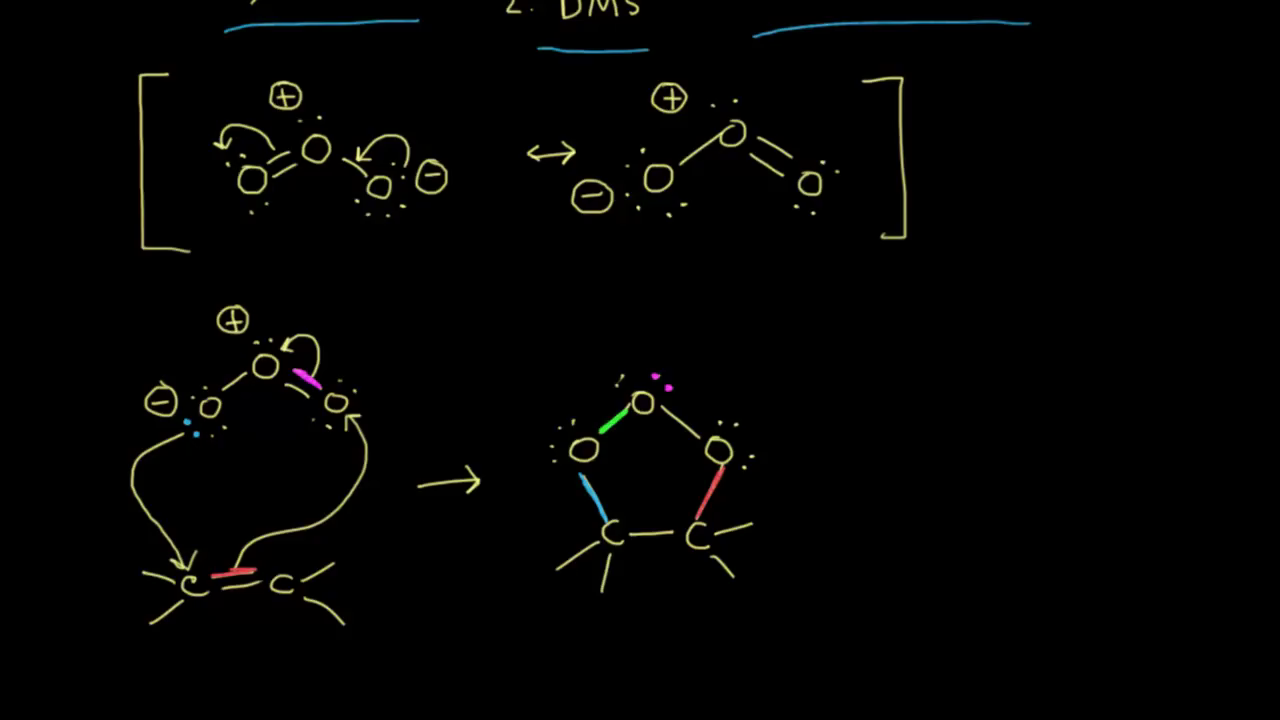 2. DMS
+ +
O = O - O - ↔ - O - O = O
+
- O - O = O
→
O O O
C - C
C = C